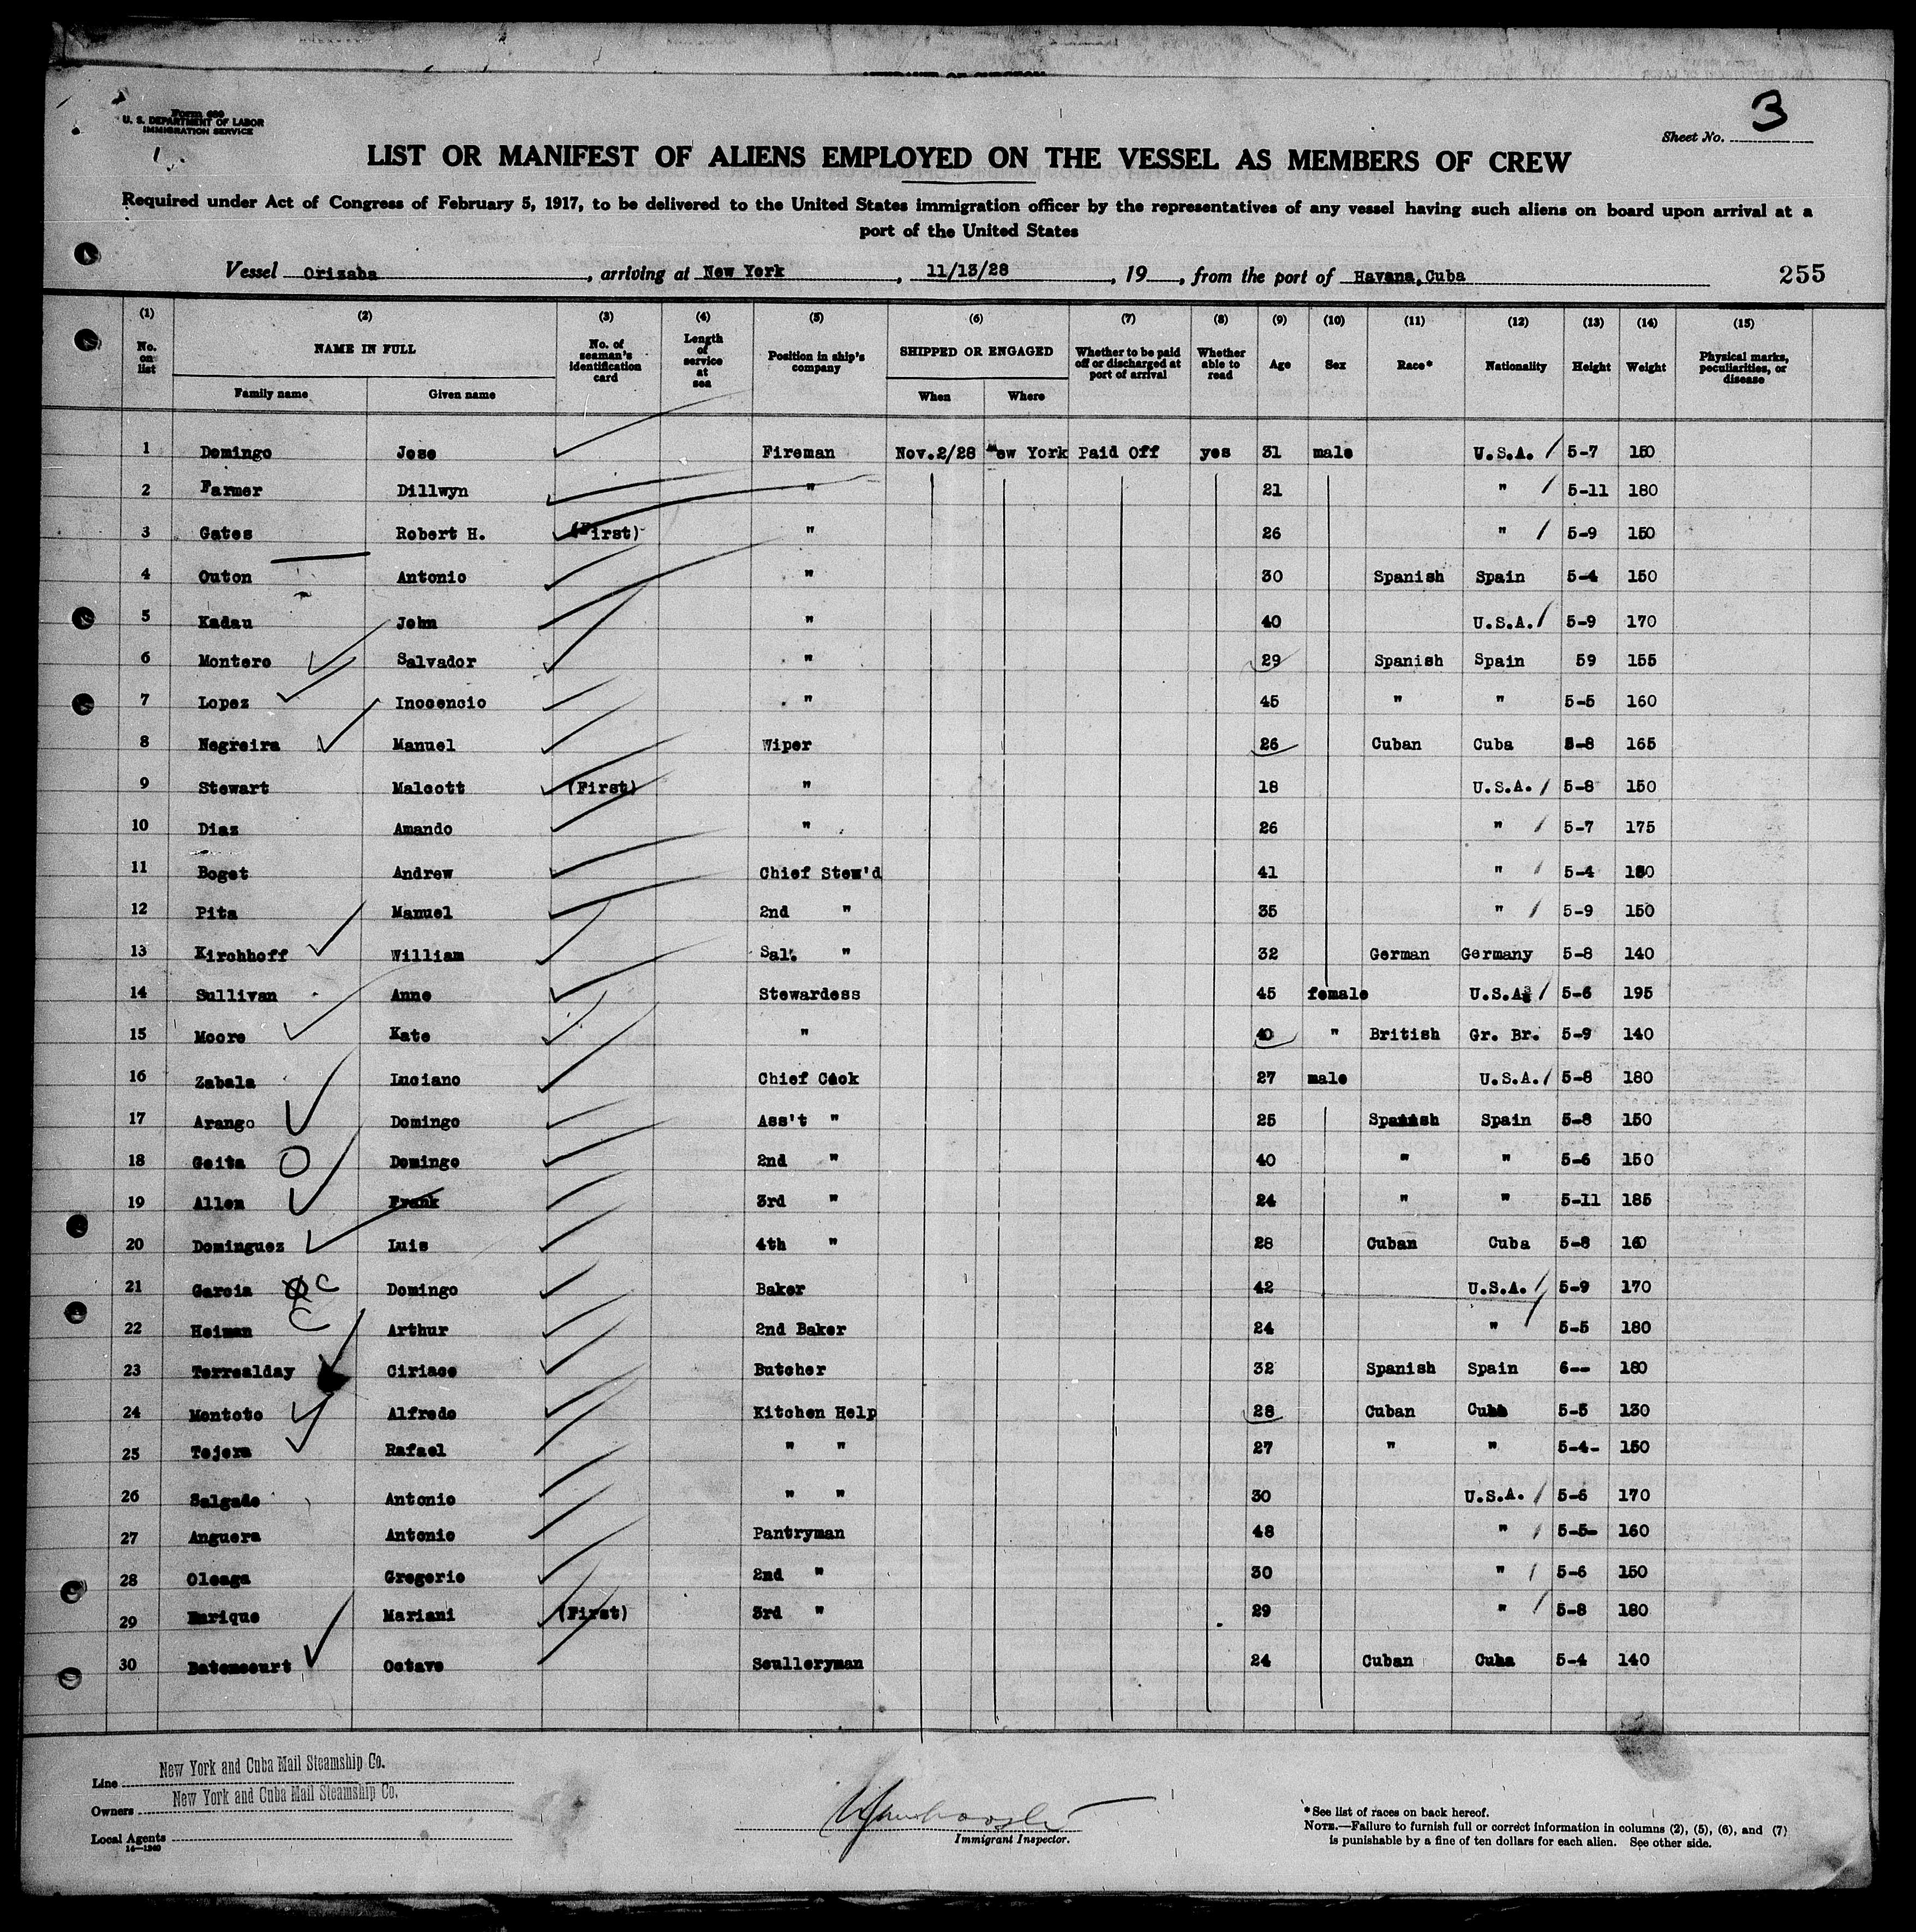 Form 680
U. S. DEPARTMENT OF LABOR
IMMIGRATION SERVICE
Sheet No. 3
LIST OR MANIFEST OF ALIENS EMPLOYED ON THE VESSEL AS MEMBERS OF CREW
Required under Act of Congress of February 5, 1917, to be delivered to the United States immigration officer by the representatives of any vessel having such aliens on board upon arrival at a
port of the United States
Vessel Orizaba, arriving at New York, 11/13/28, 19, from the port of Havana, Cuba 255
(1) (2) (3) (4) (5) (6) (7) (8) (9) (10) (11) (12) (13) (14) (15)
No. on list NAME IN FULL No. of seaman's identification card Length of service at sea Position in ship's company SHIPPED OR ENGAGED Whether to be paid off or discharged at port of arrival Whether able to read Age Sex Race* Nationality Height Weight Physical marks, peculiarities, or disease
Family name Given name When Where
1 Domingo Jose Fireman Nov.2/28 New York Paid Off yes 31 male U.S.A. 5-7 150
2 Farmer Dillwyn " 21 " 5-11 180
3 Gates Robert H. (First) " 26 " 5-9 150
4 Outon Antonio " 30 Spanish Spain 5-4 150
5 Kadau John " 40 U.S.A. 5-9 170
6 Montero Salvador " 29 Spanish Spain 59 155
7 Lopez Inocencio " 45 " " 5-5 160
8 Negreira Manuel Wiper 26 Cuban Cuba 5-8 165
9 Stewart Malcott (First) " 18 U.S.A. 5-8 150
10 Diaz Amando " 26 " 5-7 175
11 Boget Andrew Chief Stew'd 41 " 5-4
12 Pita Manuel 2nd " 35 " 5-9 150
13 Kirchhoff William Sal. " 32 German Germany 5-8 140
14 Sullivan Anne Stewardess 45 female U.S.A. 5-6 195
15 Moore Kate " 40 " British Gr. Br. 5-9 140
16 Zabala Luciano Chief Cook 27 male U.S.A. 5-8 180
17 Arango Domingo Ass't " 25 Spanish Spain 5-8 150
18 Geita Domingo 2nd " 40 " " 5-6 150
19 Allen Frank 3rd " 24 " " 5-11 185
20 Dominguez Luis 4th " 28 Cuban Cuba 5-8 160
21 Garcia C Domingo Baker 42 U.S.A. 5-9 170
22 Heiman C Arthur 2nd Baker 24 " 5-5 180
23 Terrealday Ciriaco Butcher 32 Spanish Spain 6-- 180
24 Montoto Alfredo Kitchen Help 28 Cuban Cuba 5-5 130
25 Tejera Rafael " " 27 " " 5-4- 150
26 Salgado Antonio " " 30 U.S.A. 5-6 170
27 Anguera Antonio Pantryman 48 " 5-5- 160
28 Oleaga Gregorio 2nd " 30 " 5-6 150
29 Enrique Mariani (First) 3rd " 29 " 5-8 180
30 Batencourt Octavo Sculleryman 24 Cuban Cuba 5-4 140
Line New York and Cuba Mail Steamship Co.
Owners New York and Cuba Mail Steamship Co.
Local Agents
Immigrant Inspector.
*See list of races on back hereof.
NOTE.—Failure to furnish full or correct information in columns (2), (5), (6), and (7)
is punishable by a fine of ten dollars for each alien. See other side.